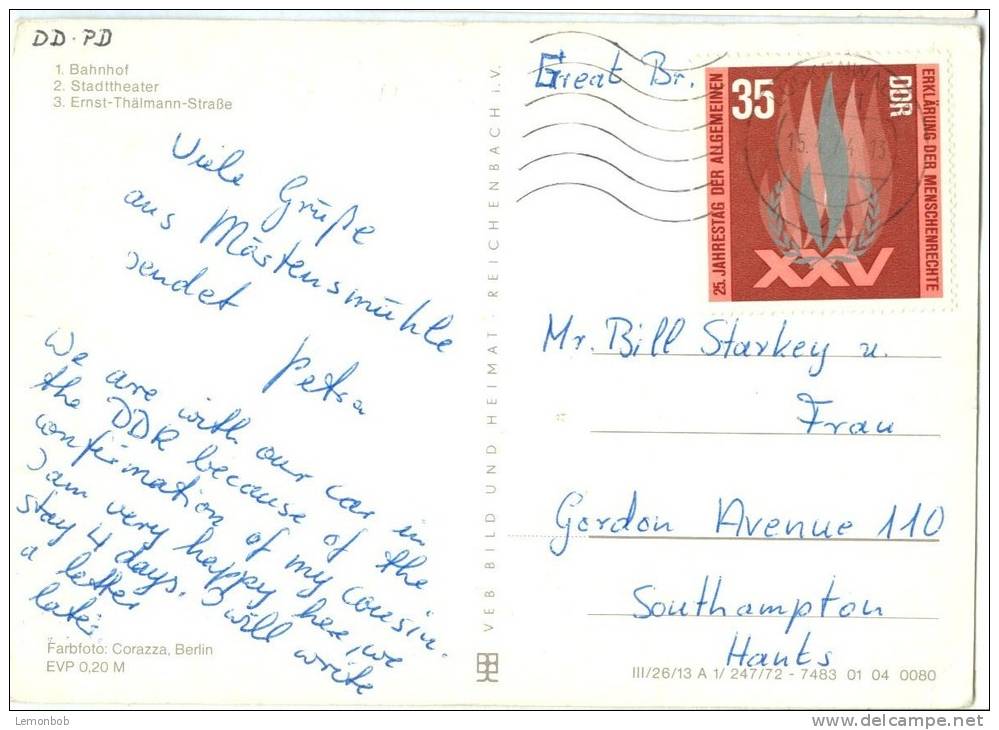 DD·PD
1. Bahnhof
2. Stadttheater
3. Ernst-Thälmann-Straße
Viele Grüße
aus Märtensmühle
sendet
Petra
We are with our car in
the DDR because of the
confirmation of my cousin.
I am very happy here, we
stay 4 days. I will write
a letter
later
Farbfoto: Corazza, Berlin
EVP 0,20 M
VEB BILD UND HEIMAT · REICHENBACH I. V.
Great Br.
25. JAHRESTAG DER ALLGEMEINEN
35
DDR
ERKLÄRUNG DER MENSCHENRECHTE
XXV
Mr. Bill Starkey u.
Frau
Gordon Avenue 110
Southampton
Hants
III/26/13 A 1/ 247/72 - 7483 01 04 0080
Lemonbob
delcampe.net